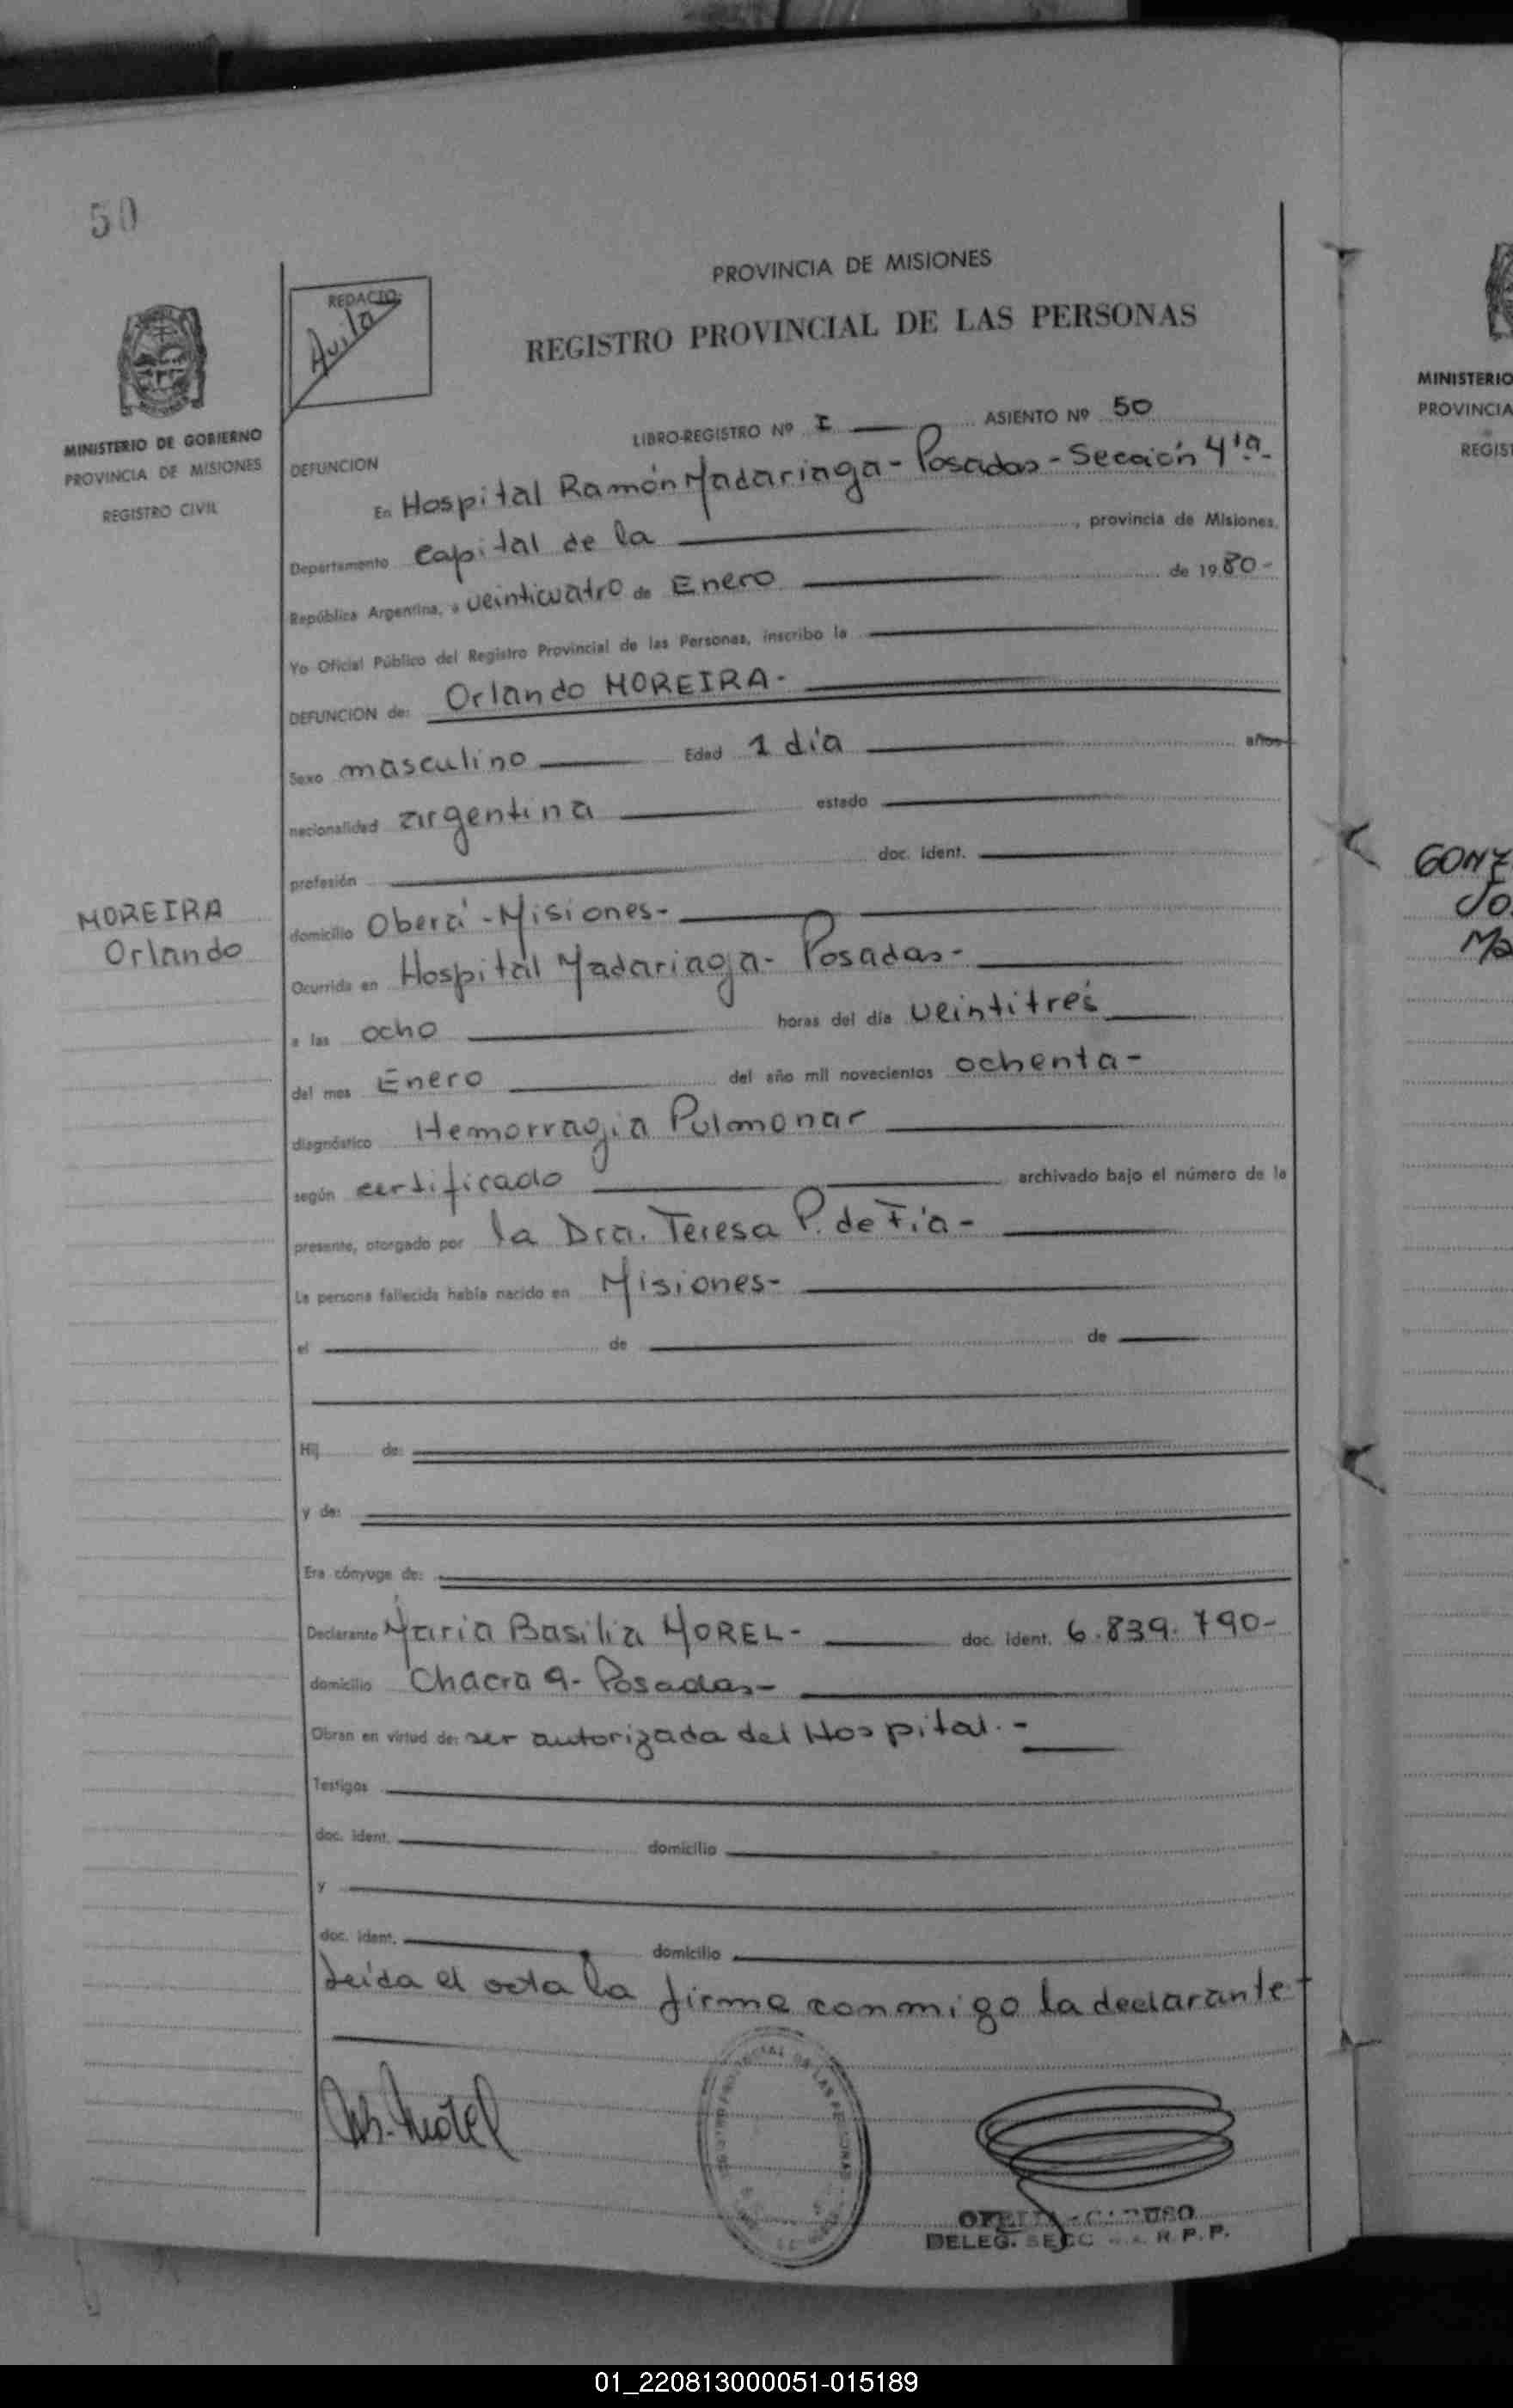 50
PROVINCIA DE MISIONES
REDACTO:
Avila
REGISTRO PROVINCIAL DE LAS PERSONAS
MINISTERIO DE GOBIERNO
PROVINCIA DE MISIONES
REGISTRO CIVIL
LIBRO-REGISTRO Nº I ASIENTO Nº 50
DEFUNCION
En Hospital Ramón Madariaga - Posadas - Sección 4ta.
Departamento Capital de la , provincia de Misiones,
República Argentina, a veinticuatro de Enero de 1980-
Yo Oficial Público del Registro Provincial de las Personas, inscribo la
DEFUNCION de: Orlando MOREIRA.
Sexo masculino Edad 1 día años
nacionalidad argentina estado
profesión doc. ident.
MOREIRA
Orlando
domicilio Oberá - Misiones-
Ocurrida en Hospital Madariaga - Posadas-
a las ocho horas del día veintitrés
del mes Enero del año mil novecientos ochenta-
diagnóstico Hemorragia Pulmonar
según certificado archivado bajo el número de la
presente, otorgado por la Dra. Teresa P. de Fía-
La persona fallecida había nacido en Misiones-
el de de
Hij de:
y de:
Era cónyuge de:
Declarante María Basilia MOREL- doc. ident. 6.839.790-
domicilio Chacra 9- Posadas-
Obran en virtud de: ser autorizada del Hospital.-
Testigos
doc. ident. domicilio
y
doc. ident. domicilio
Leída el acta la firma conmigo la declarante
M.B. Morel
DELEG. SECC R.P.P.
MINISTERIO
PROVINCIA
REGIST
GONZ
Jo
Ma
01_220813000051-015189